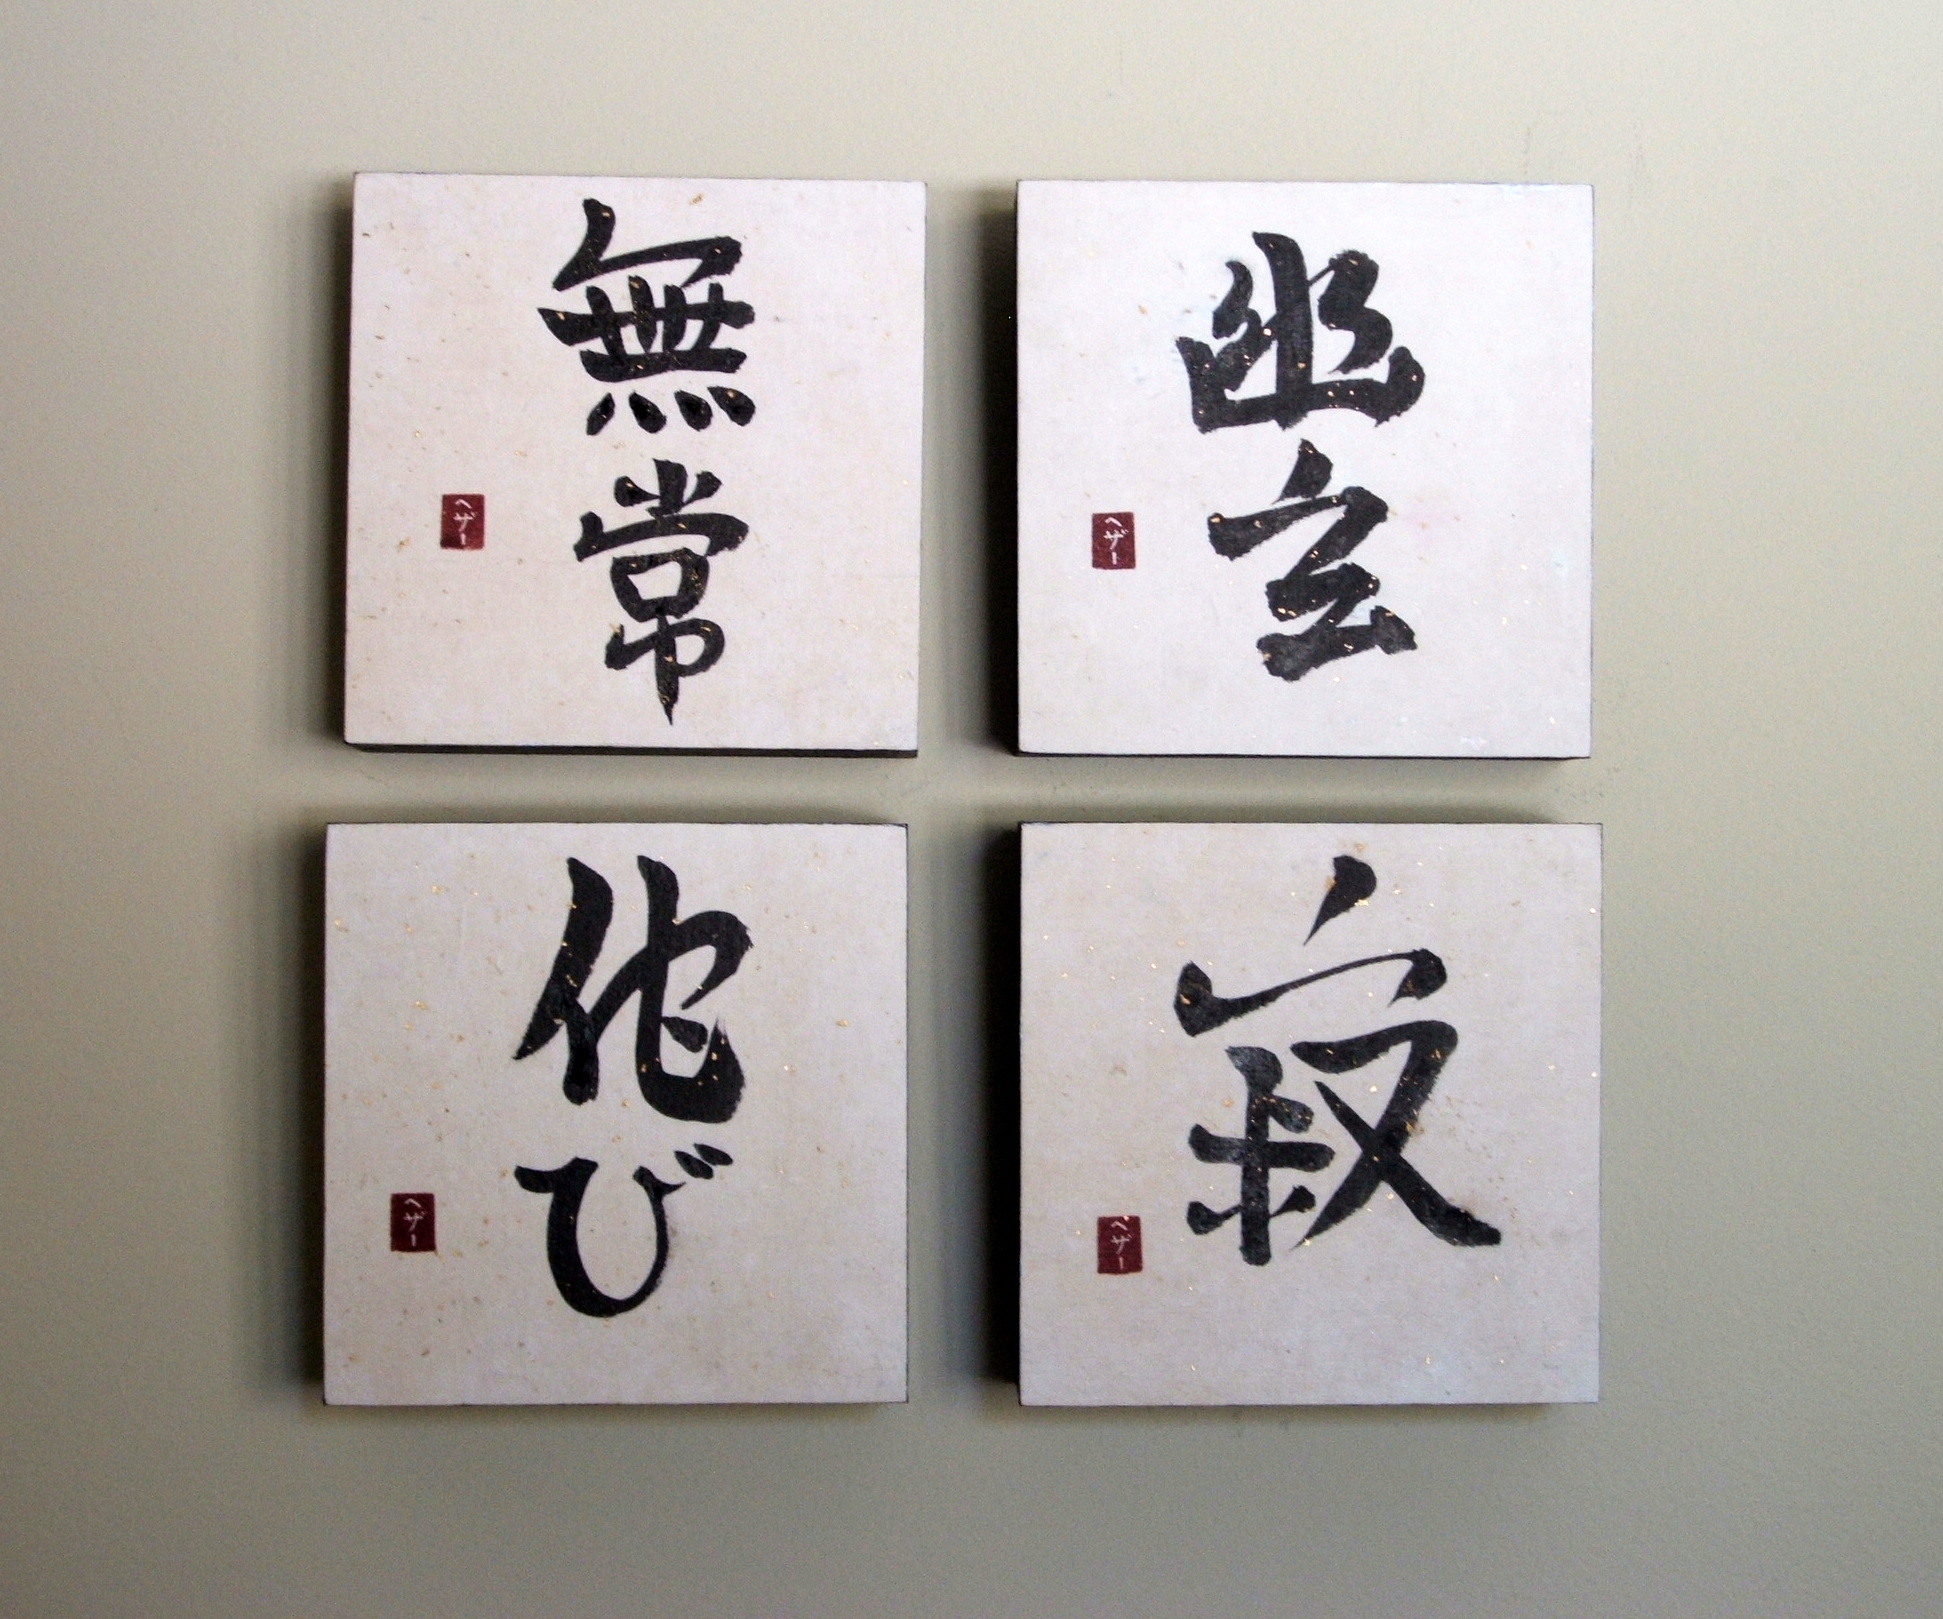 無常
ヘザー
幽玄
ヘザー
侘び
ヘザー
寂
ヘザー